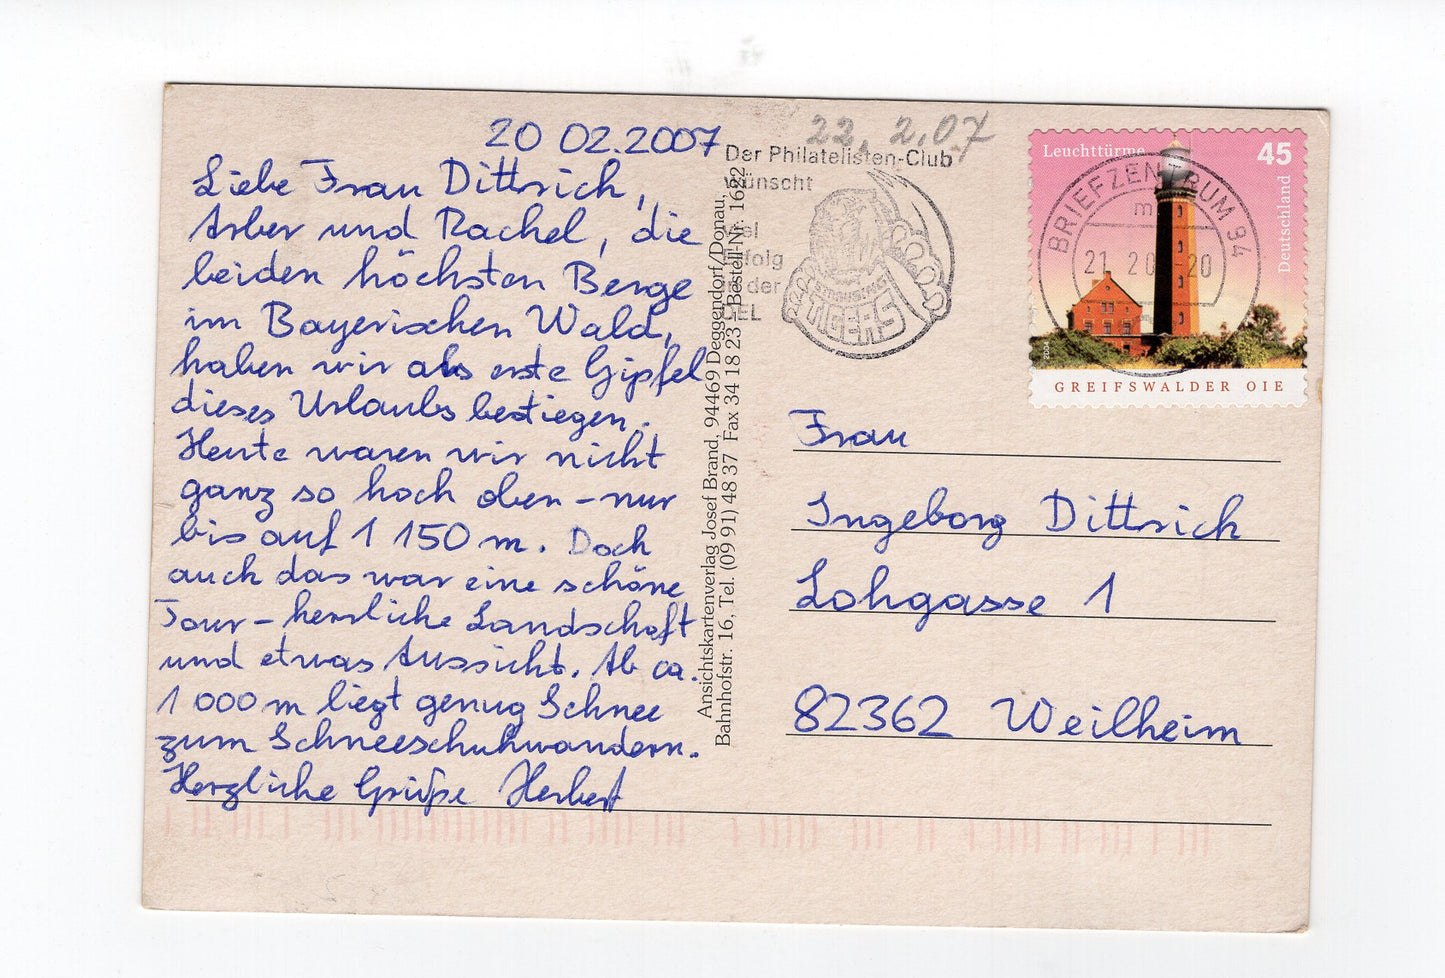 20 02.2007
Liebe Frau Dittrich,
Arber und Rachel, die
beiden höchsten Berge
im Bayerischen Wald,
haben wir als erste Gipfel
dieses Urlaubs bestiegen.
Heute waren wir nicht
ganz so hoch oben – nur
bis auf 1 150 m. Doch
auch das war eine schöne
Tour – herrliche Landschaft
und etwas Aussicht. Ab ca.
1 000 m liegt genug Schnee
zum Schneeschuhwandern.
Herzliche Grüße Herbert
Ansichtskartenverlag Josef Brand, 94469 Deggendorf/Donau,
Bahnhofstr. 16, Tel. (09 91) 48 37 Fax 34 18 23 - Bestell-Nr. 1622
22. 2.07
Der Philatelisten-Club
wünscht
viel
Erfolg
in der
DEL
STRAUBING
TIGERS
Leuchttürme
45
Deutschland
2004
GREIFSWALDER OIE
BRIEFZENTRUM 94
m
21 20 -20
Frau
Ingeborg Dittrich
Lohgasse 1
82362 Weilheim